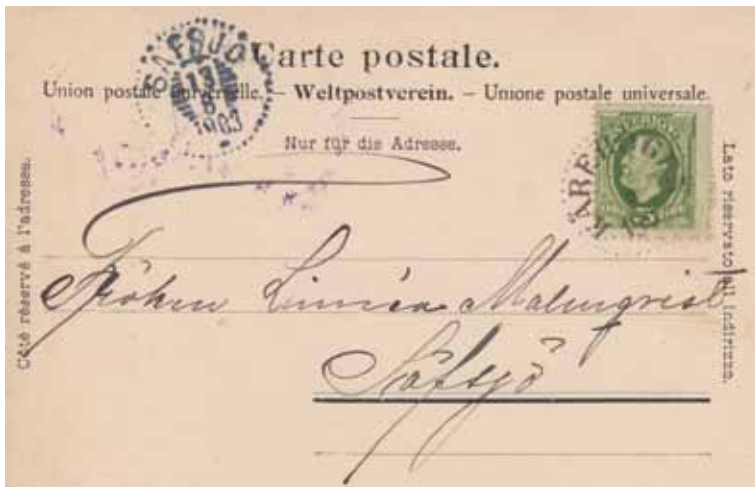 Carte postale.
Union postale universelle. – Weltpostverein. – Unione postale universale.
Nur für die Adresse.
SÄFSJÖ
13
8
1903
SVERIGE
5
Côté réservé à l'adresse.
Lato riservato all indirizzo.
Fröken Linnéa Malmqvist
Säfsjö